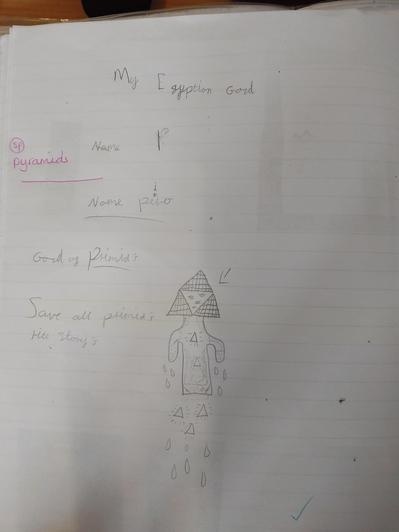 My Egyption God
sp
pyramids
Name P
Name pibo
God of Primid's
Save all primid's